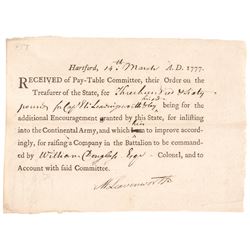 Hartford, 14th March A.D. 1777.
RECEIVED of Pay-Table Committee, their Order on the
Treasurer of the State, for Three hundred & Sixty
pounds for Capt being for the
additional Encouragement granted by this State, for inlisting
into the Continental Army, and which to improve accord-
ingly, for raising a Company in the Battalion to be commanded
by William Douglass Esqr Colonel, and to
Account with said Committee.
M Leavenworth